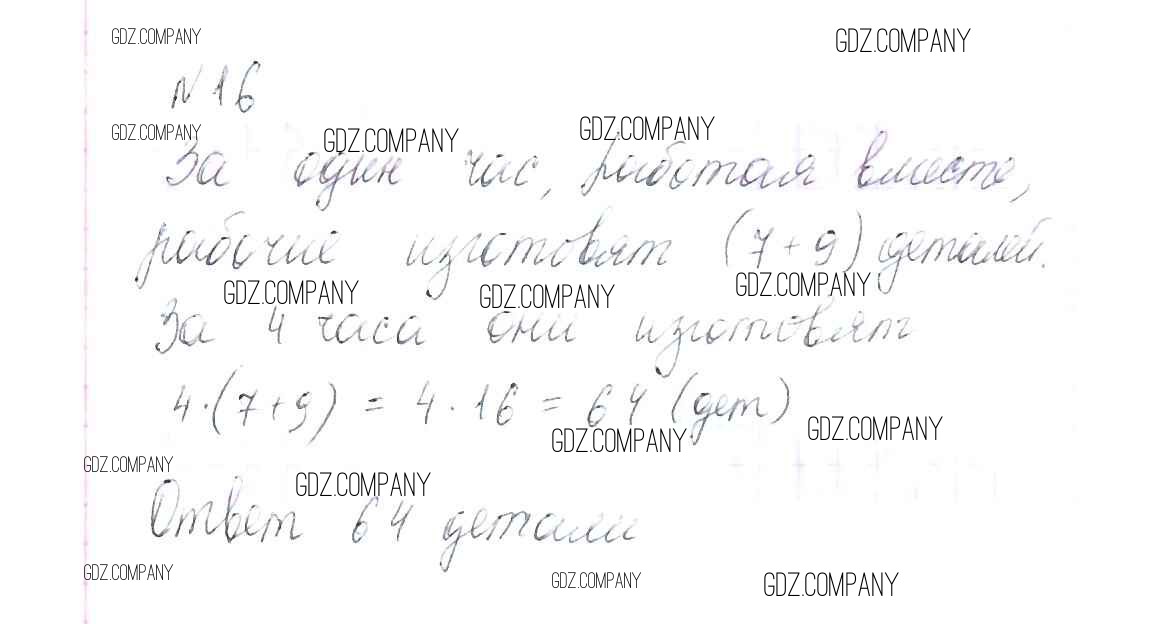 GDZ.COMPANY
GDZ.COMPANY
№ 16
GDZ.COMPANY
GDZ.COMPANY
GDZ.COMPANY
За один час, работая вместе,
рабочие изготовят (7+9) деталей.
GDZ.COMPANY
GDZ.COMPANY
GDZ.COMPANY
За 4 часа они изготовят
4·(7+9) = 4·16 = 64 (дет)
GDZ.COMPANY
GDZ.COMPANY
GDZ.COMPANY
GDZ.COMPANY
Ответ 64 детали
GDZ.COMPANY
GDZ.COMPANY
GDZ.COMPANY